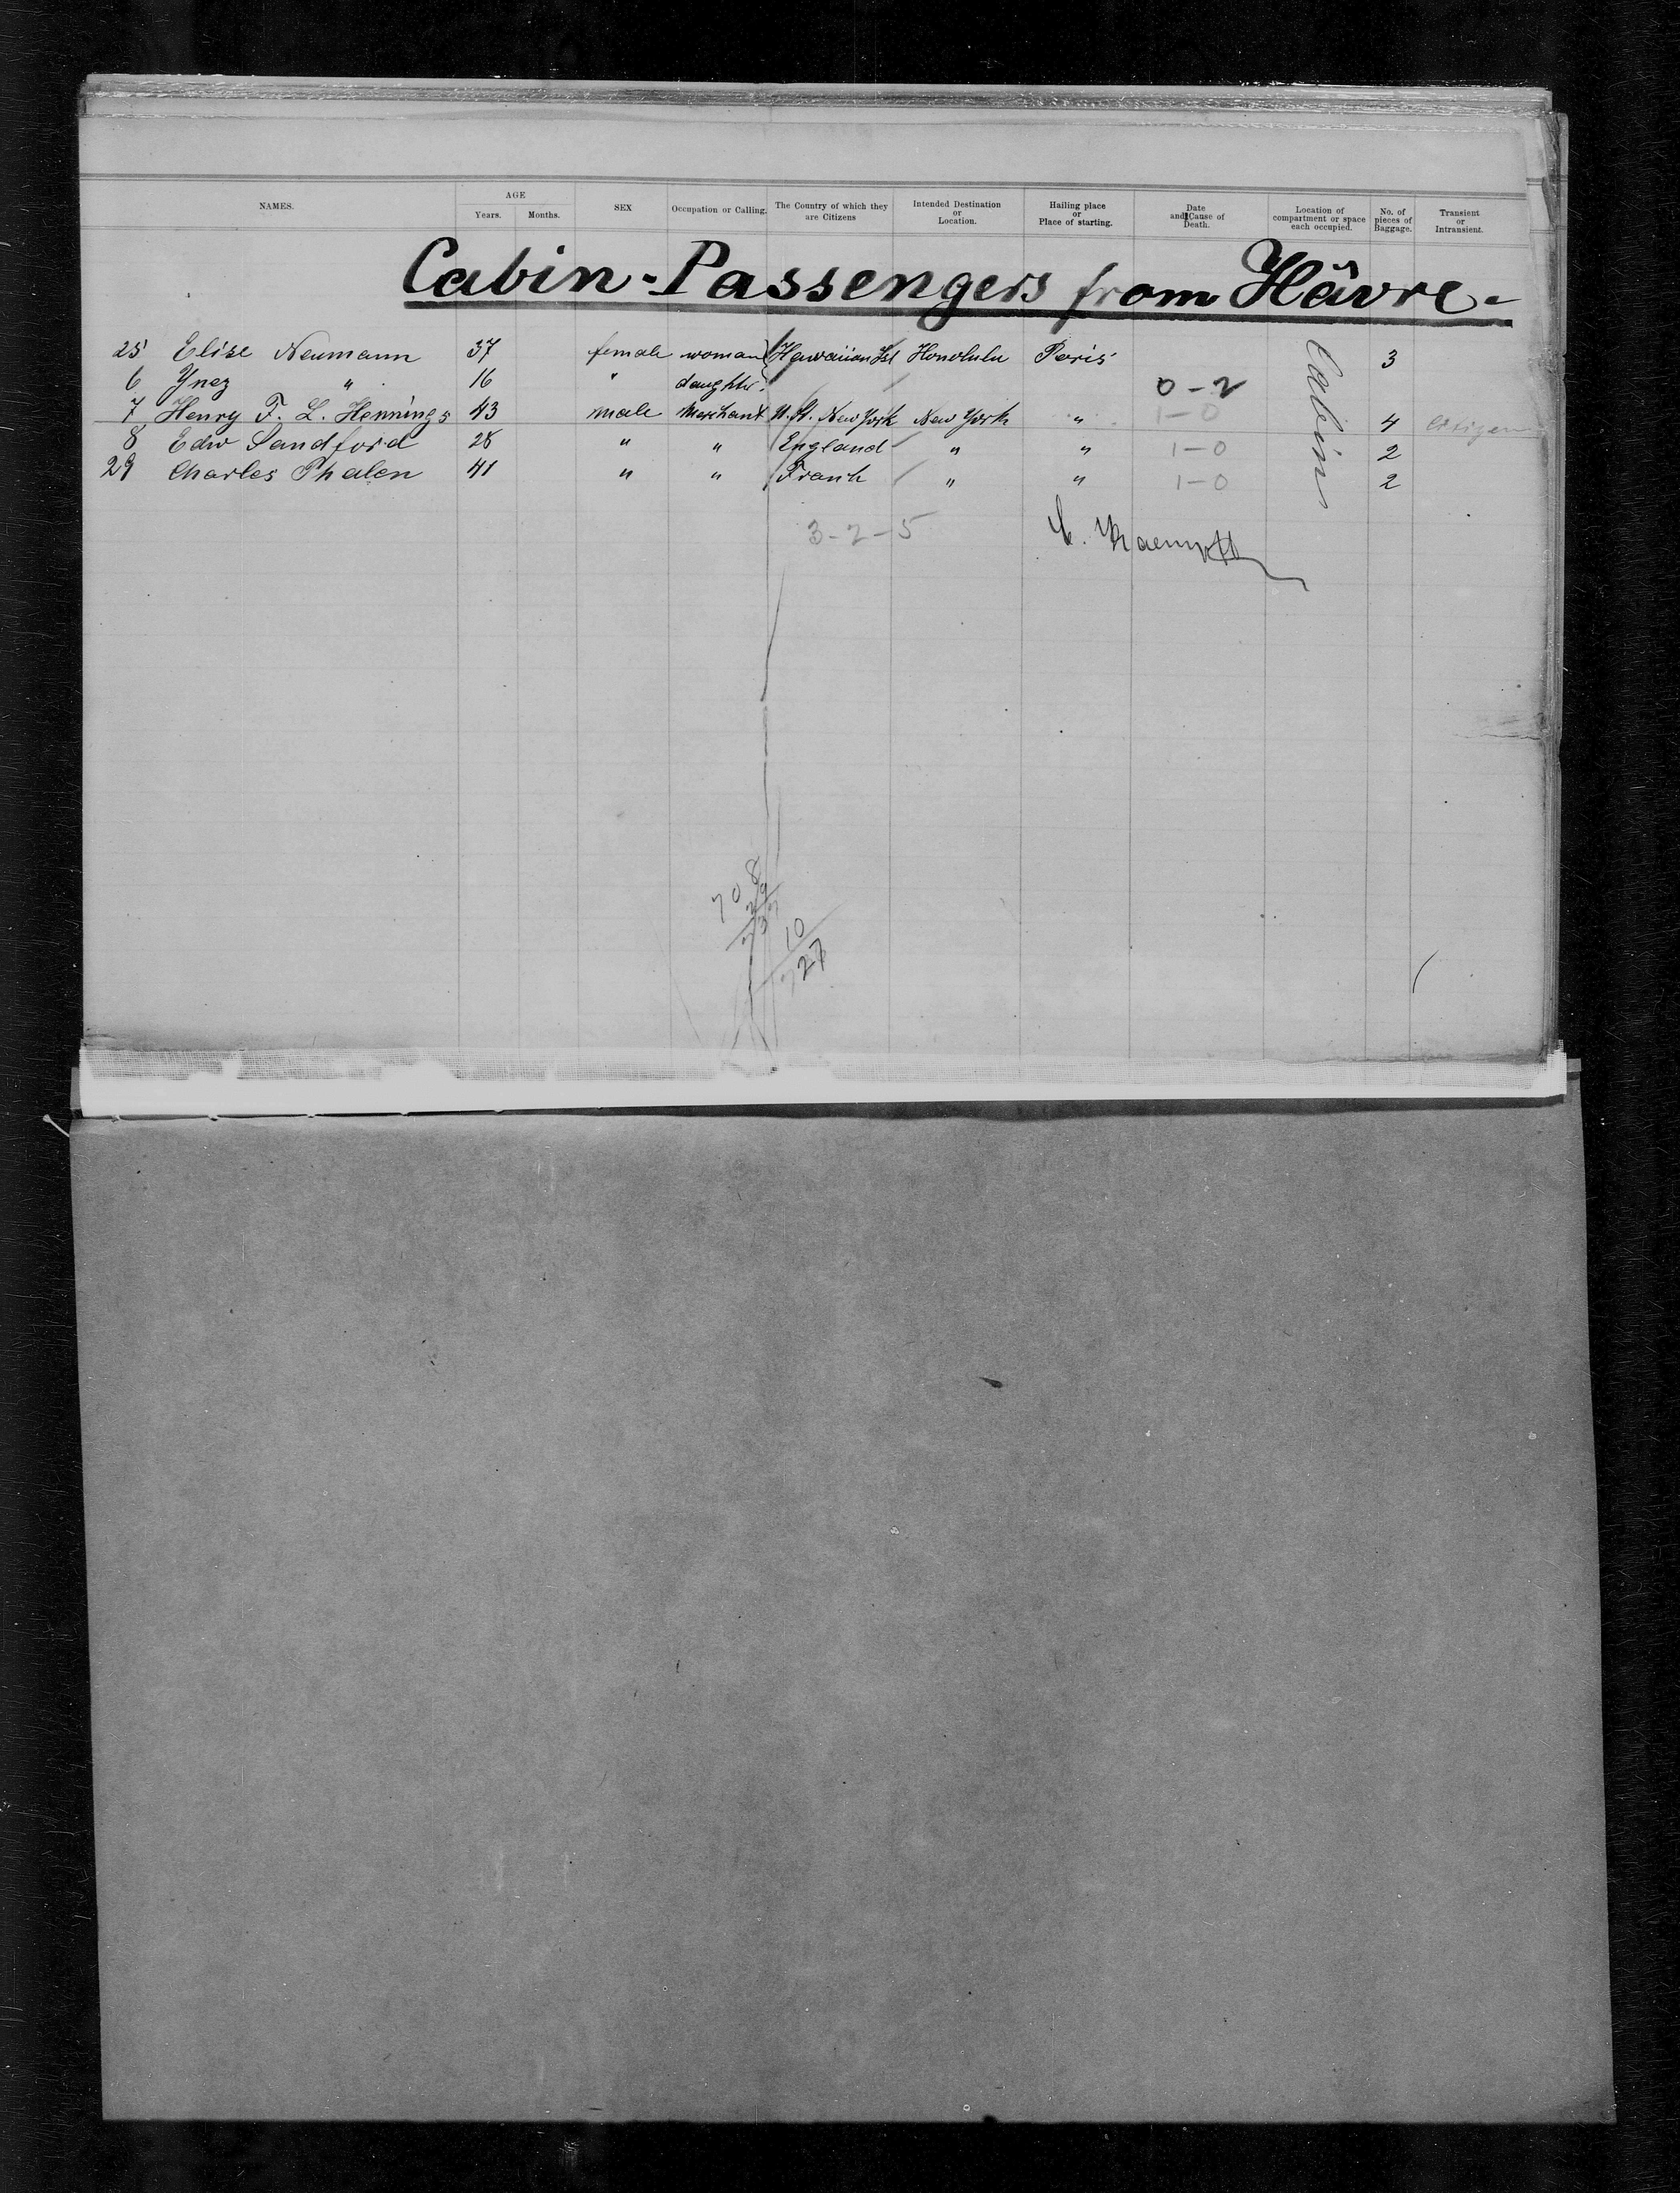 NAMES. AGE SEX Occupation or Calling. The Country of which they are Citizens Intended Destination or Location. Hailing place or Place of starting. Date and Cause of Death. Location of compartment or space each occupied. No. of pieces of Baggage. Transient or Intransient.
Years. Months.
Cabin-Passengers from Hâvre.-
25 Elise Neumann 37 female woman Hawaiian Isl Honolulu Paris Cabin 3
6 Ynez " 16 " daughter 0-2
7 Henry F. L. Hennings 43 male Merchant U.St. New York New York " 1-0 4 Citizen
8 Edw Sandford 28 " " England " " 1-0 2
29 Charles Phalen 41 " " Franch " " 1-0 2
3-2-5
708
29
737
10
727